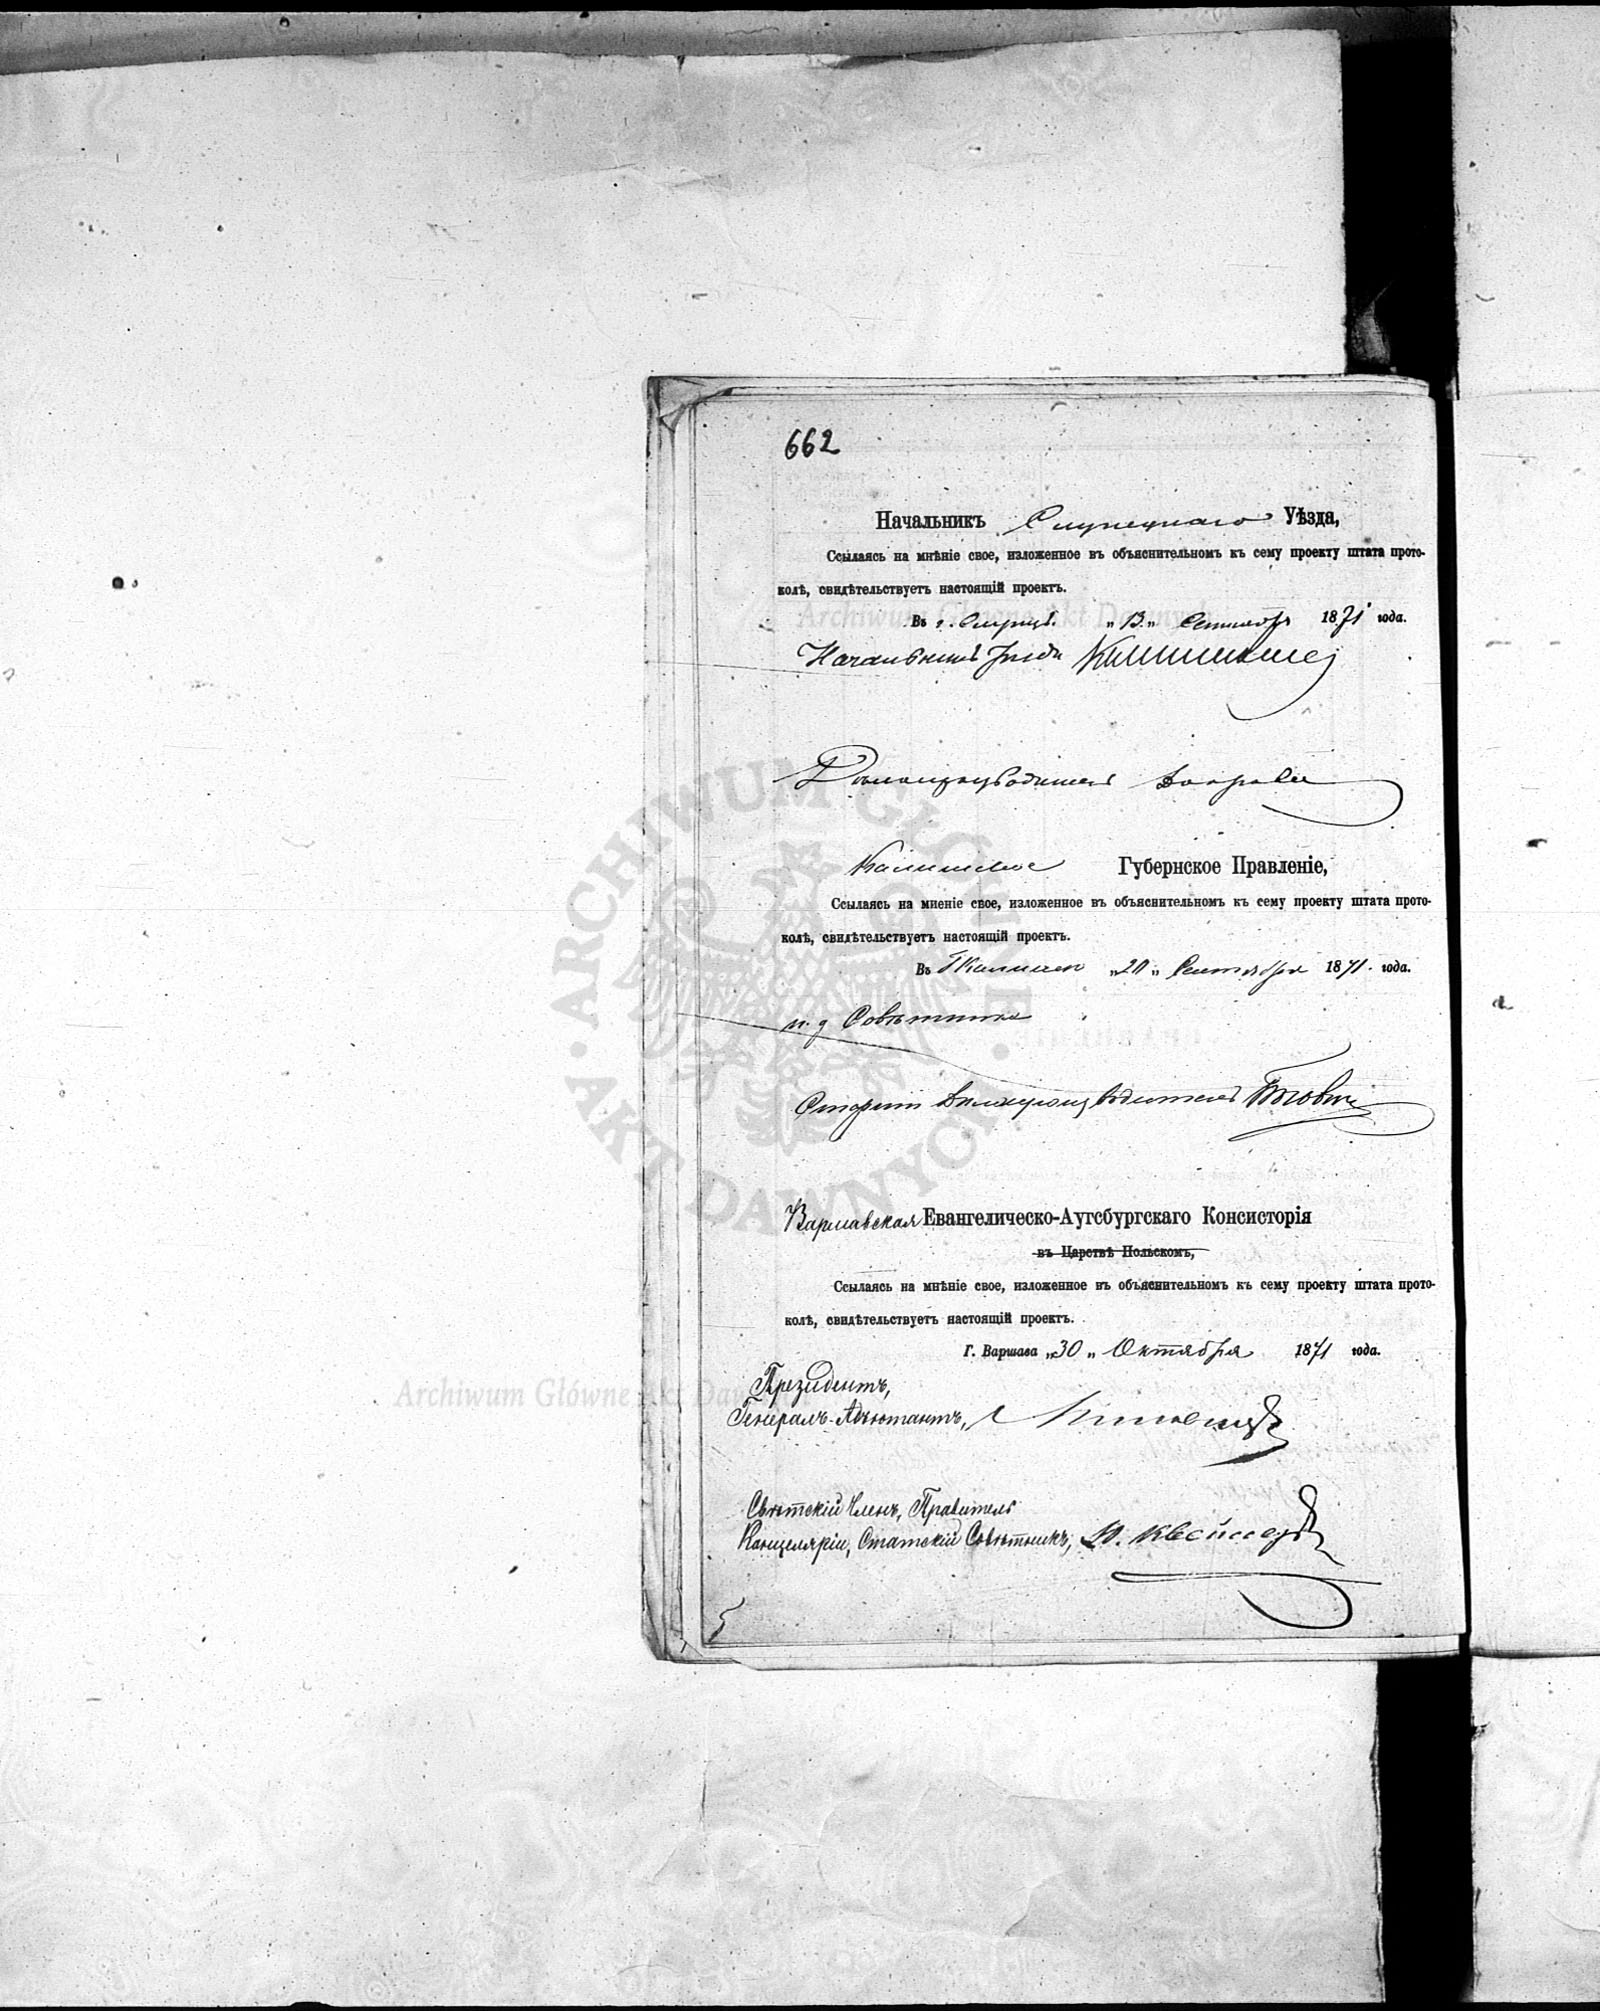 662
Начальникъ Слупецкаго Уѣзда,
Ссылаясь на мнѣніе свое, изложенное въ объяснительномъ къ сему проекту штата прото-
колѣ, свидѣтельствуетъ настоящій проектъ.
Въ г. Слупцѣ. „13„ Сентября 1871 года.
Начальникъ Уѣзда
Дѣлопроизводитель
Калишское Губернское Правленіе,
Ссылаясь на мненіе свое, изложенное въ объяснительномъ къ сему проекту штата прото-
колѣ, свидѣтельствуетъ настоящій проектъ.
Въ г Калишѣ „20„ Сентября 1871. года.
и. д Совѣтника
Старшій Дѣлопроизводитель
Варшавская Евангелическо-Аугсбургскаго Консисторія
въ Царствѣ Польскомъ,
Ссылаясь на мнѣніе свое, изложенное въ объяснительномъ къ сему проекту штата прото-
колѣ, свидѣтельствуетъ настоящій проектъ.
Г. Варшава „30„ Октября 1871 года.
Президентъ,
Генералъ-Адъютантъ,
Свѣтскій Членъ, Правитель
Канцеляріи, Статскій Совѣтникъ,
ARCHIWUM GŁÓWNE AKT DAWNYCH
Archiwum Główne Akt Dawnych
Archiwum Główne Akt Dawnych